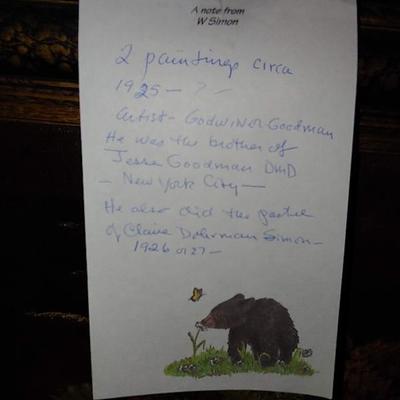 A note from
W Simon
2 paintings circa
1925 - ? -
Artist - Godwin or Goodman
He was the brother of
Jesse Goodman DMD
- New York City -
He also did the pastel
of Claire Doherman Simon -
1926 or 27 -